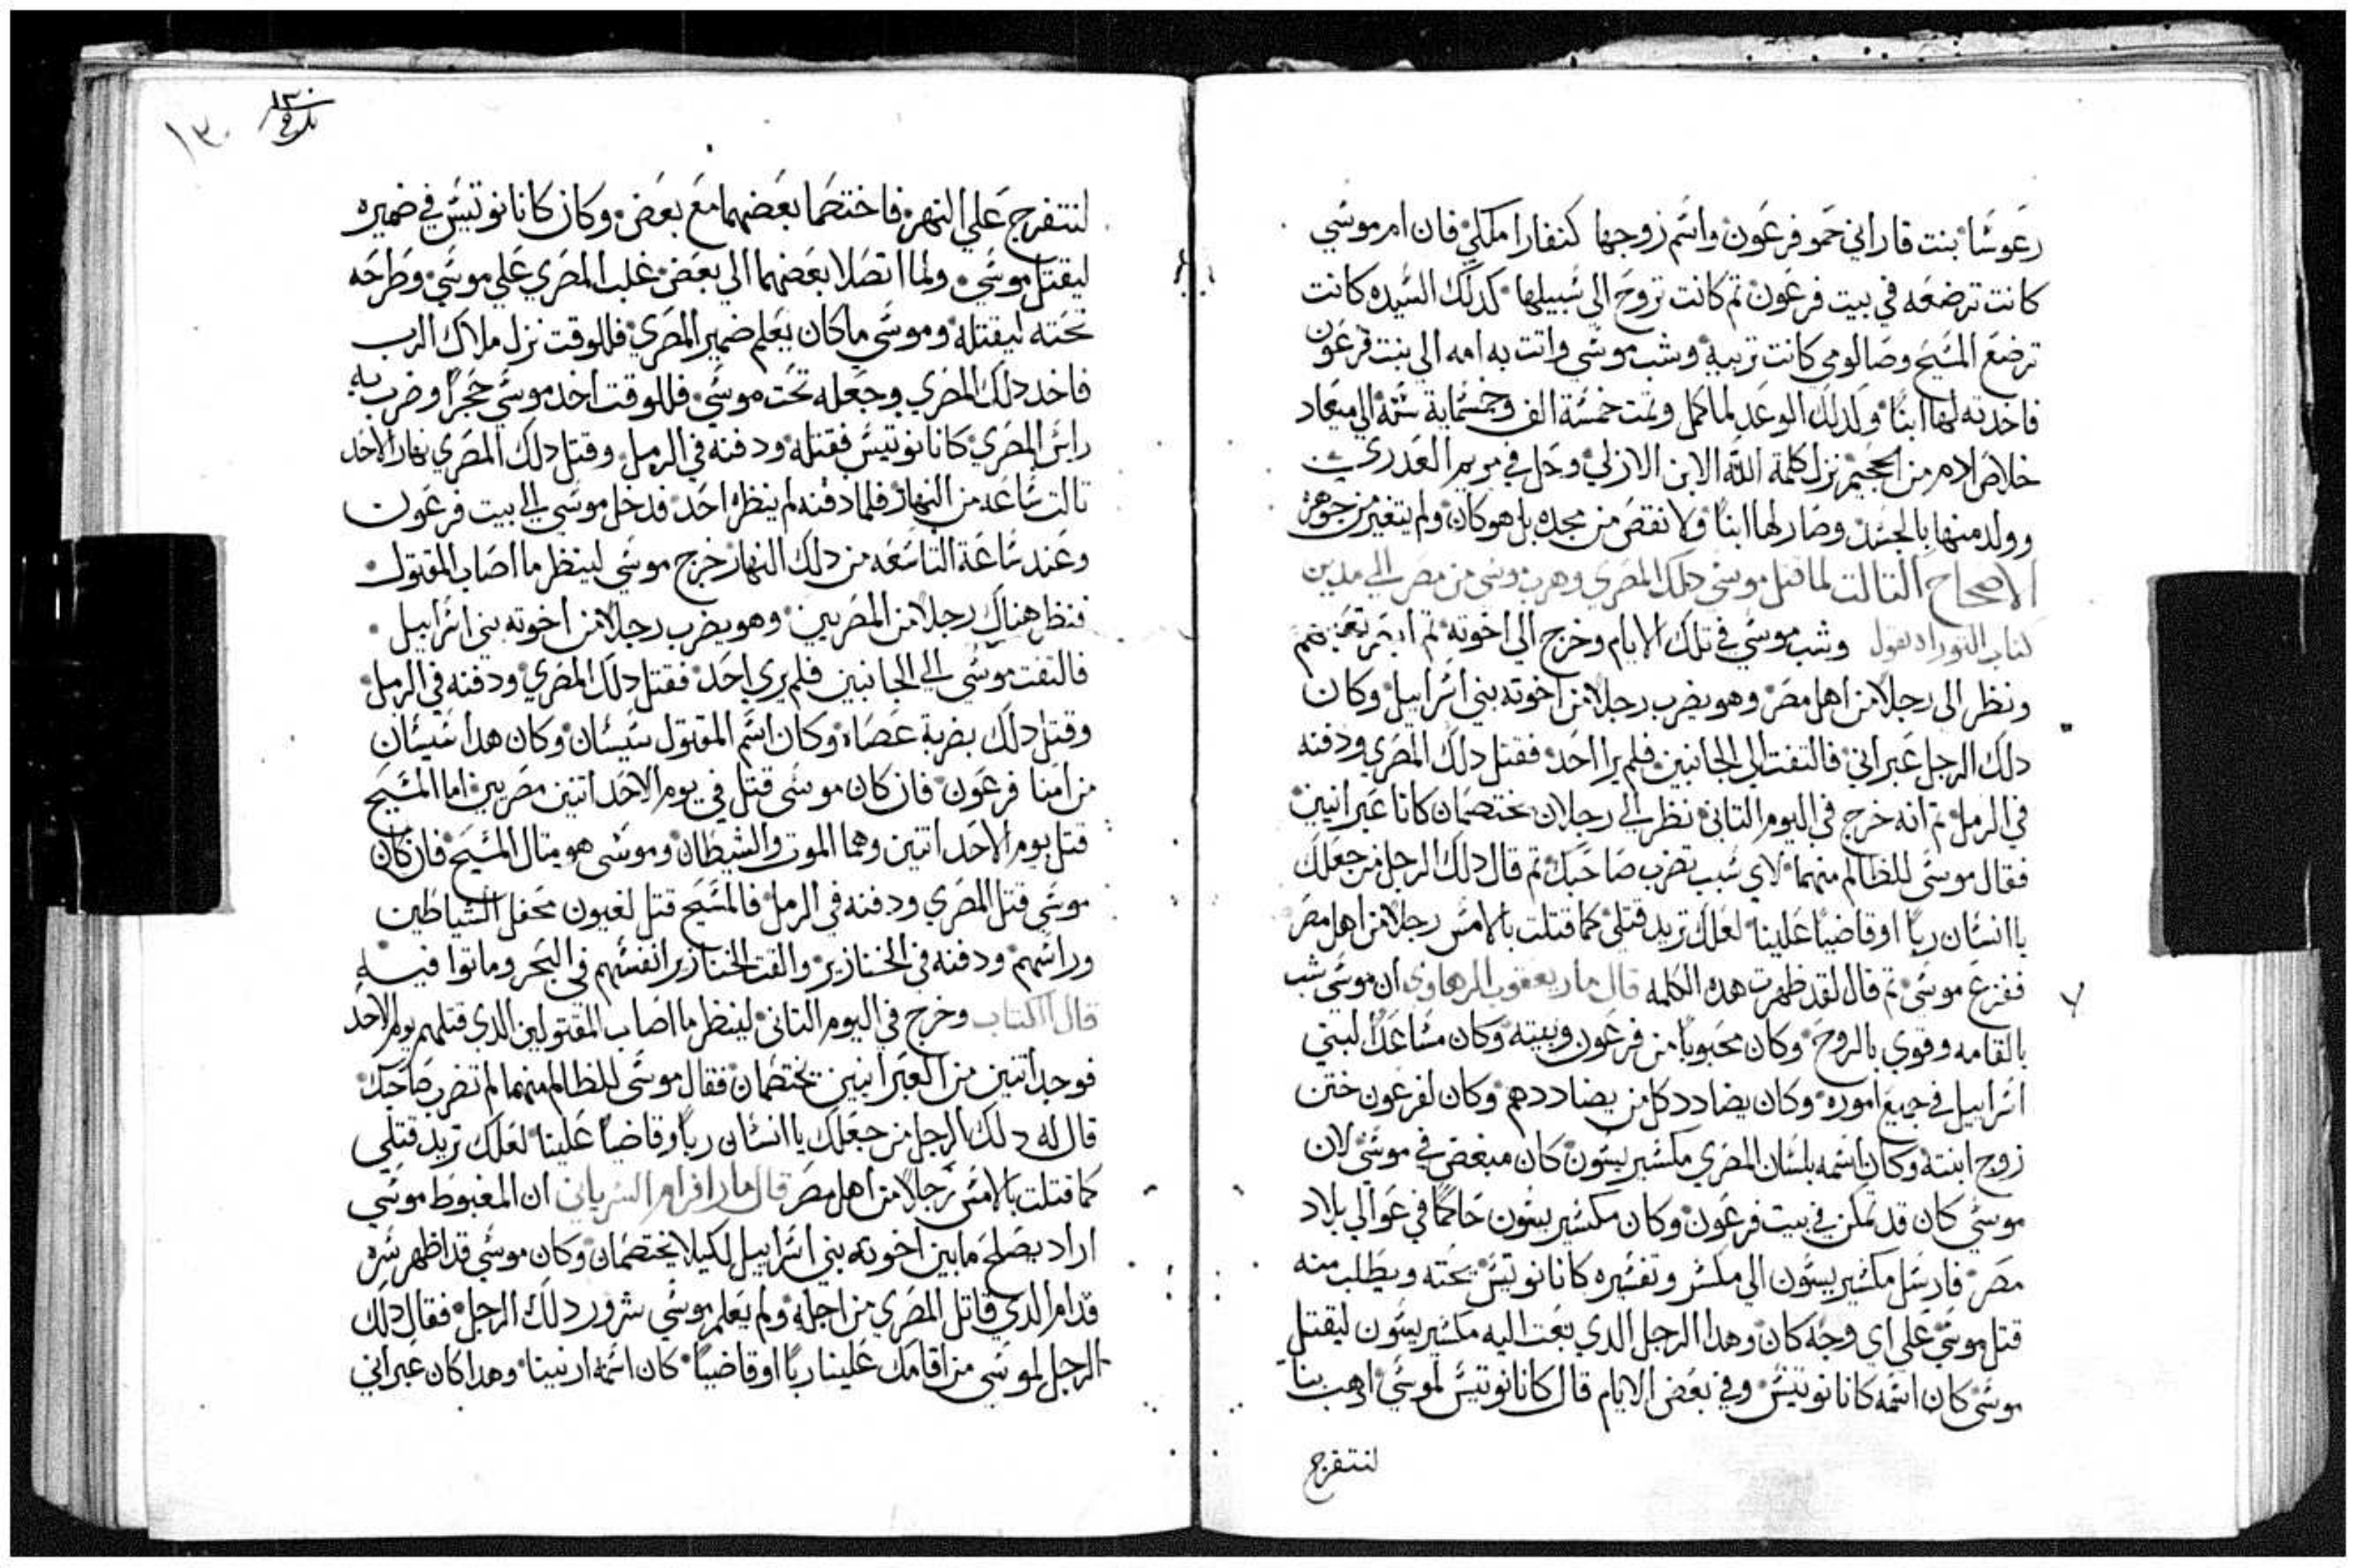 رعوسا بنت قاراني حمو فرعون واسم زوجها كنفارا ملكي فان ام موسي
كانت ترضعه في بيت فرعون تم كانت تروح الي سبيلها كدلك السيده كانت
ترضع المسيح وصالومي كانت تربيه وشب موسي واتت به امه الي بنت فرعون
فاخدته لها ابنا ولدلك الوعد لما كمل وتمت خمسة الف وخمسماية سنة الي ميعاد
خلاص ادم من الجحيم نزل كلمة الله الابن الازلي وحل في مريم العدري
وولد منها بالجسد وصار لها ابنا ولا نقص من مجده بل هو كان ولم يتغير من جوهره
الاصحاح التالت لما قتل موسي دلك المصري وهرب موسي من مصر الي مدين
كتاب التوراه يقول وشب موسي في تلك الايام وخرج الي اخوته تم ابصر تعبهم
ونظر الي رجلا من اهل مصر وهو يضرب رجلا من اخوته بني اسراييل وكان
دلك الرجل عبراني فالتفت الي الجانبين فلم يرا احد فقتل دلك المصري ودفنه
في الرمل تم انه خرج في اليوم التاني نظر الي رجلان يختصمان كانا عبرانيين
فقال موسي للظالم منهما لاي سبب تضرب صاحبك تم قال دلك الرجل من جعلك
يا انسان ربا او قاضيا علينا لعلك تريد قتلي كما قتلت بالامس رجلا من اهل مصر
ففزع موسي تم قال لقد ظهرت هده الكلمه قال مار يعقوب الرهاوي ان موسي شب
بالقامه وقوي بالروح وكان محبوبا من فرعون وبيته وكان مساعدا لبني
اسراييل في جميع اموره وكان يضادد كل من يضاددهم وكان لفرعون ختن
زوج ابنته وكان اسمه بلسان المصري مكسيريسون كان مبغض في موسي لان
موسي كان قد تمكن في بيت فرعون وكان مكسيريسون حاكما في عوالي بلاد
مصر فارسل مكسيريسون الي مكسر وتفسيره كانانوتيس يحته ويطلب منه
قتل موسي علي اي وجه كان وهدا الرجل الدي بعت اليه مكسيريسون ليقتل
موسي كان اسمه كانانوتيس وفي بعض الايام قال كانانوتيس لموسي ادهب بنا
لنتفرج
١٣٠
١٣٠
لنتفرج علي النهر فاختصما بعضهما مع بعض وكان كانانوتيس في ضميره
ليقتل موسي ولما اتصلا بعضهما الي بعض غلب المصري علي موسي وطرحه
تحته ليقتله وموسي ما كان يعلم ضمير المصري فللوقت نزل ملاك الرب
فاخد دلك المصري وجعله تحت موسي فللوقت اخد موسي حجرا وضرب به
راس المصري كانانوتيس فقتله ودفنه في الرمل وقتل دلك المصري نهار الاحد
تالت ساعه من النهار فلما دفنه لم ينظره احد فدخل موسي الي بيت فرعون
وعند ساعة التاسعه من دلك النهار خرج موسي لينظر ما اصاب المقتول
فنظر هناك رجلا من المصريين وهو يضرب رجلا من اخوته بني اسراييل
فالتفت موسي الي الجانبين فلم يري احد فقتل دلك المصري ودفنه في الرمل
وقتل دلك بضربة عصاه وكان اسم المقتول سيسان وكان هدا سيسان
من امنا فرعون فان كان موسي قتل في يوم الاحد اتنين مصريين اما المسيح
قتل يوم الاحد اتنين وهما الموت والشيطان وموسي هو متال المسيح فان كان
موسي قتل المصري ودفنه في الرمل فالمسيح قتل لغيون محفل الشياطين
وراسهم ودفنه في الخنازير والقت الخنازير انفسهم في البحر وماتوا فيه
قال الكتاب وخرج في اليوم التاني لينظر ما اصاب المقتولين الدي قتلهم يوم الاحد
فوجد اتنين من العبرانيين يختصمان فقال موسي للظالم منهما لم تضرب صاحبك
قال له دلك الرجل من جعلك يا انسان ربا وقاضيا علينا لعلك تريد قتلي
كما قتلت بالامس رجلا من اهل مصر قال مار افرام السرياني ان المغبوط موسي
اراد يصلح ما بين اخوته بني اسراييل لكيلا يختصمان وكان موسي قد اظهر سره
قدام الدي قاتل المصري من اجله ولم يعلم موسي شرور دلك الرجل فقال دلك
الرجل لموسي من اقامك علينا ربا او قاضيا كان اسمه اربينا وهدا كان عبراني